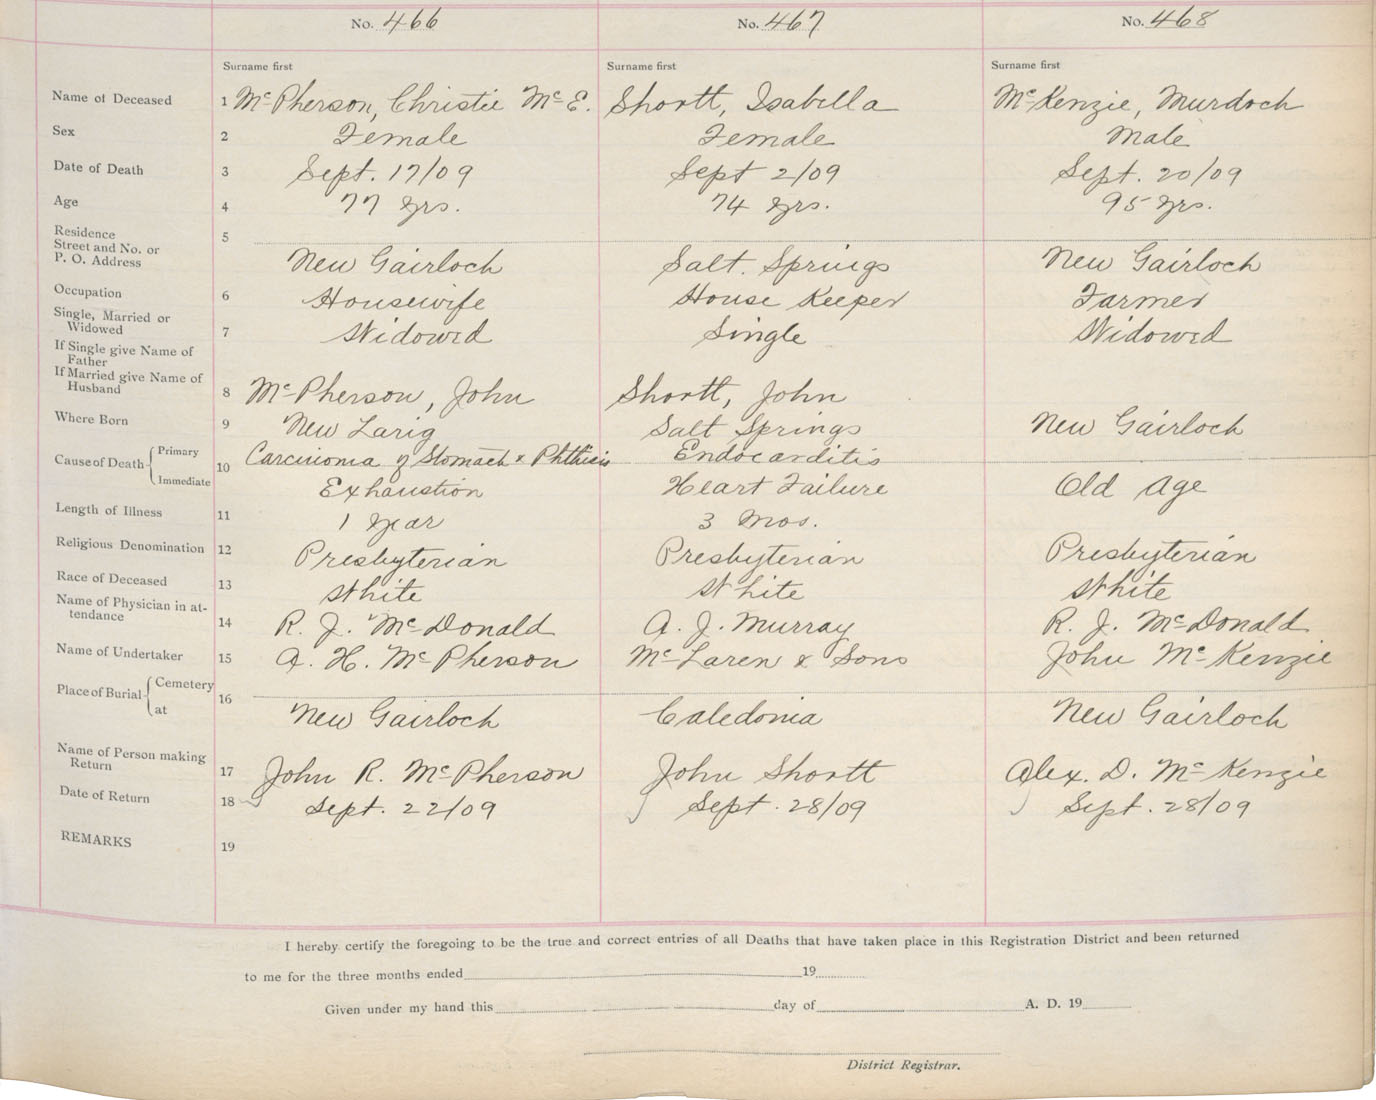 No. 466 No. 467 No. 468
Surname first Surname first Surname first
Name of Deceased 1 McPherson, Christie McE. Shortt, Isabella McKenzie, Murdoch
Sex 2 Female Female Male
Date of Death 3 Sept. 17/09 Sept 2/09 Sept. 20/09
Age 4 77 yrs. 74 yrs. 95 yrs.
Residence 5
Street and No. or
P. O. Address New Gairloch Salt. Springs New Gairloch
Occupation 6 Housewife House Keeper Farmer
Single, Married or
Widowed 7 Widowed Single Widowed
If Single give Name of
Father
If Married give Name of
Husband 8 McPherson, John Shortt, John
Where Born 9 New Larig Salt Springs New Gairloch
Cause of Death Primary 10 Carcinoma of Stomach & Phthisis Endocarditis
Immediate Exhaustion Heart Failure Old Age
Length of Illness 11 1 Year 3 Mos.
Religious Denomination 12 Presbyterian Presbyterian Presbyterian
Race of Deceased 13 White White White
Name of Physician in at-
tendance 14 R. J. McDonald A. J. Murray R. J. McDonald
Name of Undertaker 15 A. H. McPherson McLaren & Sons John McKenzie
Place of Burial Cemetery 16
at New Gairloch Caledonia New Gairloch
Name of Person making
Return 17 John R. McPherson John Shortt Alex. D. McKenzie
Date of Return 18 Sept. 22/09 Sept. 28/09 Sept. 28/09
REMARKS 19
I hereby certify the foregoing to be the true and correct entries of all Deaths that have taken place in this Registration District and been returned
to me for the three months ended 19
Given under my hand this day of A. D. 19
District Registrar.